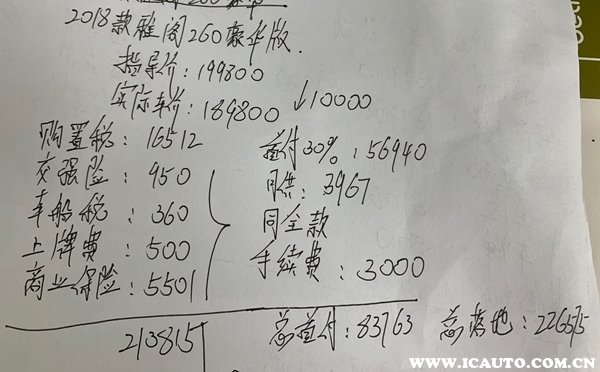 2018款雅阁260豪华版.
指导价:199800
实际车价:189800 ↓10000
购置税:16512
交强险:950
车船税:360
上牌费:500
商业保险:5501
213815
首付30%:56940
月供:3967
同全款
手续费:3000
总首付:83763 总落地:226575
WWW.ICAUTO.COM.CN